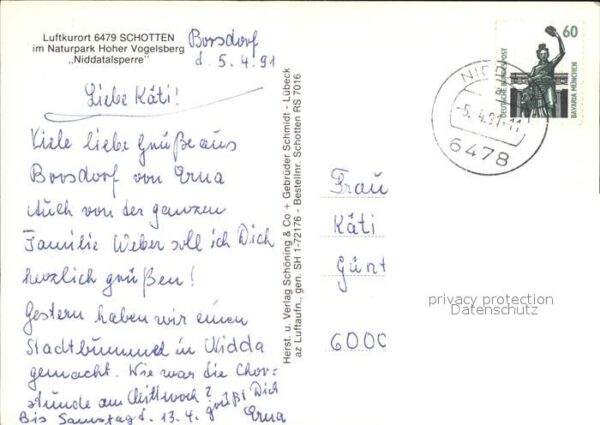 Luftkurort 6479 SCHOTTEN
im Naturpark Hoher Vogelsberg
„Niddatalsperre"
Borsdorf
d. 5.4.91
Liebe Käti!
Viele liebe Grüße aus
Borsdorf von Erna
Auch von der ganzen
Familie Weber soll ich Dich
herzlich grüßen!
Gestern haben wir einen
Stadtbummel in Nidda
gemacht. Wie war die Chor-
stunde am Mittwoch?
Bis Samstag d. 13.4. grüßt Dich
Erna
Herst. u. Verlag Schöning & Co + Gebrüder Schmidt - Lübeck
az Luftaufn., gen. SH 1-72176 - Bestellnr. Schotten RS 7016
60
DEUTSCHE BUNDESPOST
BAVARIA MÜNCHEN
-5.4.91-11
6478
Frau
Käti
Günt
6000
privacy protection
Datenschutz